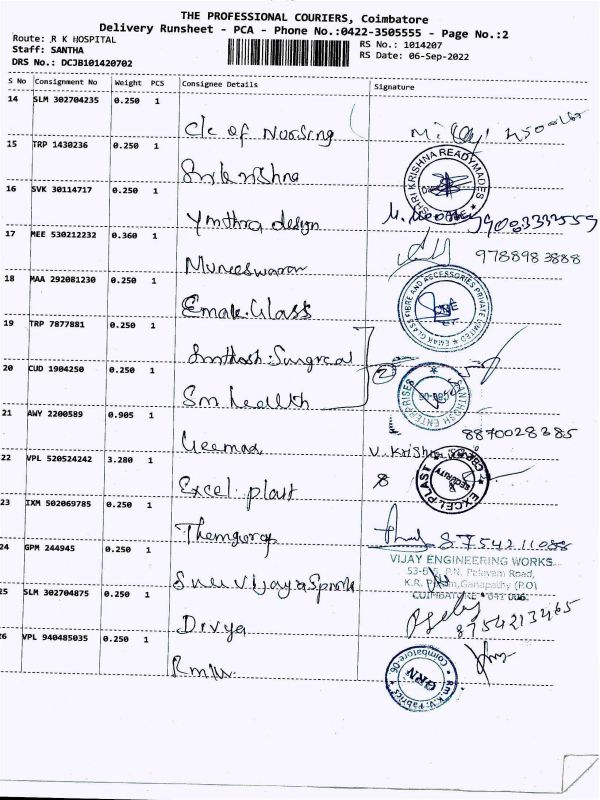 THE PROFESSIONAL COURIERS, Coimbatore
Delivery Runsheet - PCA - Phone No.:0422-3505555 - Page No.:2
Route: ,R K HOSPITAL
RS No.: 1014207
Staff: SANTHA
RS Date: 06-Sep-2022
DRS No.: DCJB101420702
S No Consignment No Weight PCS Consignee Details Signature
14 SLM 302704235 0.250 1
C/c of Nursing
15 TRP 1430236 0.250 1
Sri krishna
SHRI KRISHNA READYMADES
16 SVK 30114717 0.250 1
Ymthra design
9003333559
17 MEE 530212232 0.360 1
Muneeswaran
9788983888
18 MAA 292081230 0.250 1
Emak. Glass
EMAK GLASS FIBRE AND ACCESSORIES PRIVATE LIMITED
19 TRP 7877881 0.250 1
Santhosh. Surgical
20 CUD 1904250 0.250 1
2
Sm health
SANTOSH ENTERPRISES
21 AWY 2200589 0.905 1
8870028385
V. Krishna
22 VPL 520524242 3.280 1
Excel. plast
EXCEL PLAST
SECURITY
23 IXM 502069785 0.250 1
8754211088
24 GPM 244945 0.250 1
VIJAY ENGINEERING WORKS
P.N. Palayam Road,
Ganapathy (P.O)
COIMBATORE - 641 006.
Sree Vijaya Sprock
25 SLM 302704875 0.250 1
Divya
8754213465
26 VPL 940485035 0.250 1
Rmkv.
Rm.K.V. Fabrics
Coimbatore-06
GRN